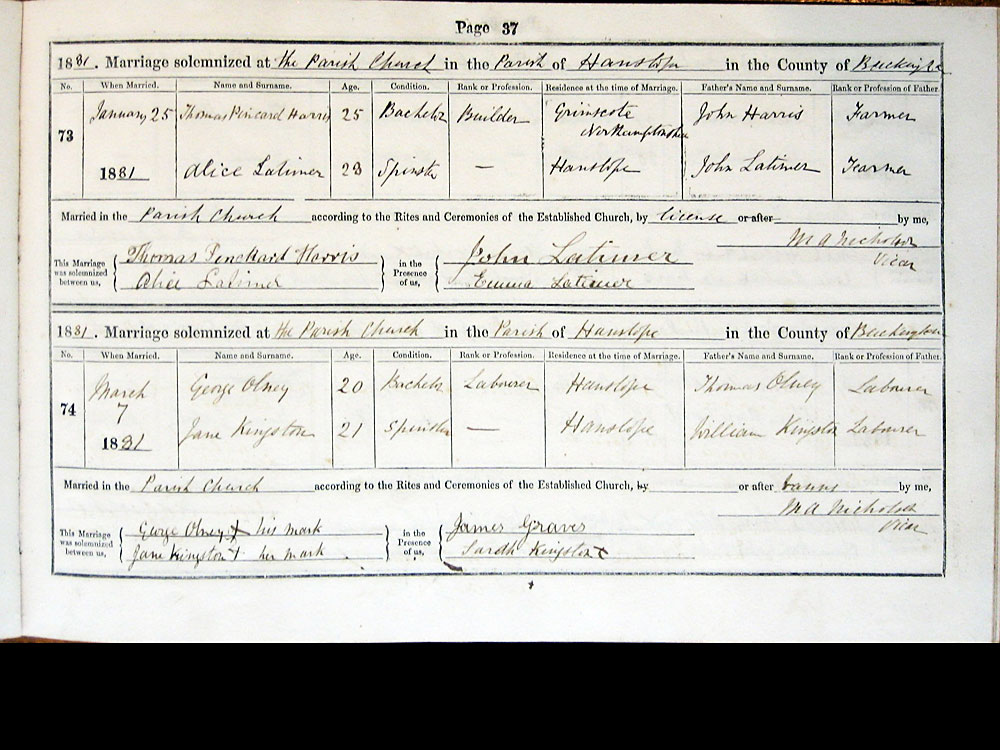 Page 37
1881. Marriage solemnized at the Parish Church in the Parish of Hanslope in the County of
No. When Married. Name and Surname. Age. Condition. Rank or Profession. Residence at the time of Marriage. Father's Name and Surname. Rank or Profession of Father.
73 January 25 Thomas Harris 25 Bachelor Builder Grimscote Northamptonshire John Harris Farmer
1881 Alice Latimer 23 Spinster — Hanslope John Latimer Farmer
Married in the Parish Church according to the Rites and Ceremonies of the Established Church, by license or after by me,
M A Nicholson
Vicar
This Marriage was solemnized between us, Thomas Harris in the Presence of us, John Latimer
Alice Latimer Emma Latimer
1881. Marriage solemnized at the Parish Church in the Parish of Hanslope in the County of
No. When Married. Name and Surname. Age. Condition. Rank or Profession. Residence at the time of Marriage. Father's Name and Surname. Rank or Profession of Father.
74 March 7 George Olney 20 Bachelor Labourer Hanslope Thomas Olney Labourer
1881 Jane Kingston 21 Spinster — Hanslope William Kingston Labourer
Married in the Parish Church according to the Rites and Ceremonies of the Established Church, by or after banns by me,
M A Nicholson
Vicar
This Marriage was solemnized between us, George Olney X his mark in the Presence of us, James Graves
Jane Kingston X her mark Sarah Kingston X